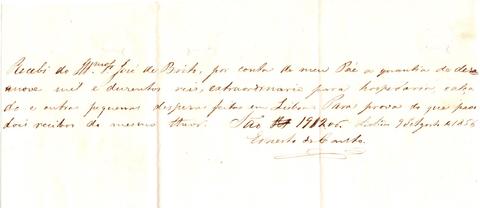 Recebi do Illmo Sr José de Brito, por conta de meu Pae a quantia de deza
nove mil e duzentos reis, extraordinario para hospedaria, calça
do e outras pequenas despezas feitas em Lisboa. Para prova do que passo
dois recibos do mesmo theor. São 19$200. Lisboa 9 de Agosto de 1856
Ernesto do Canto.